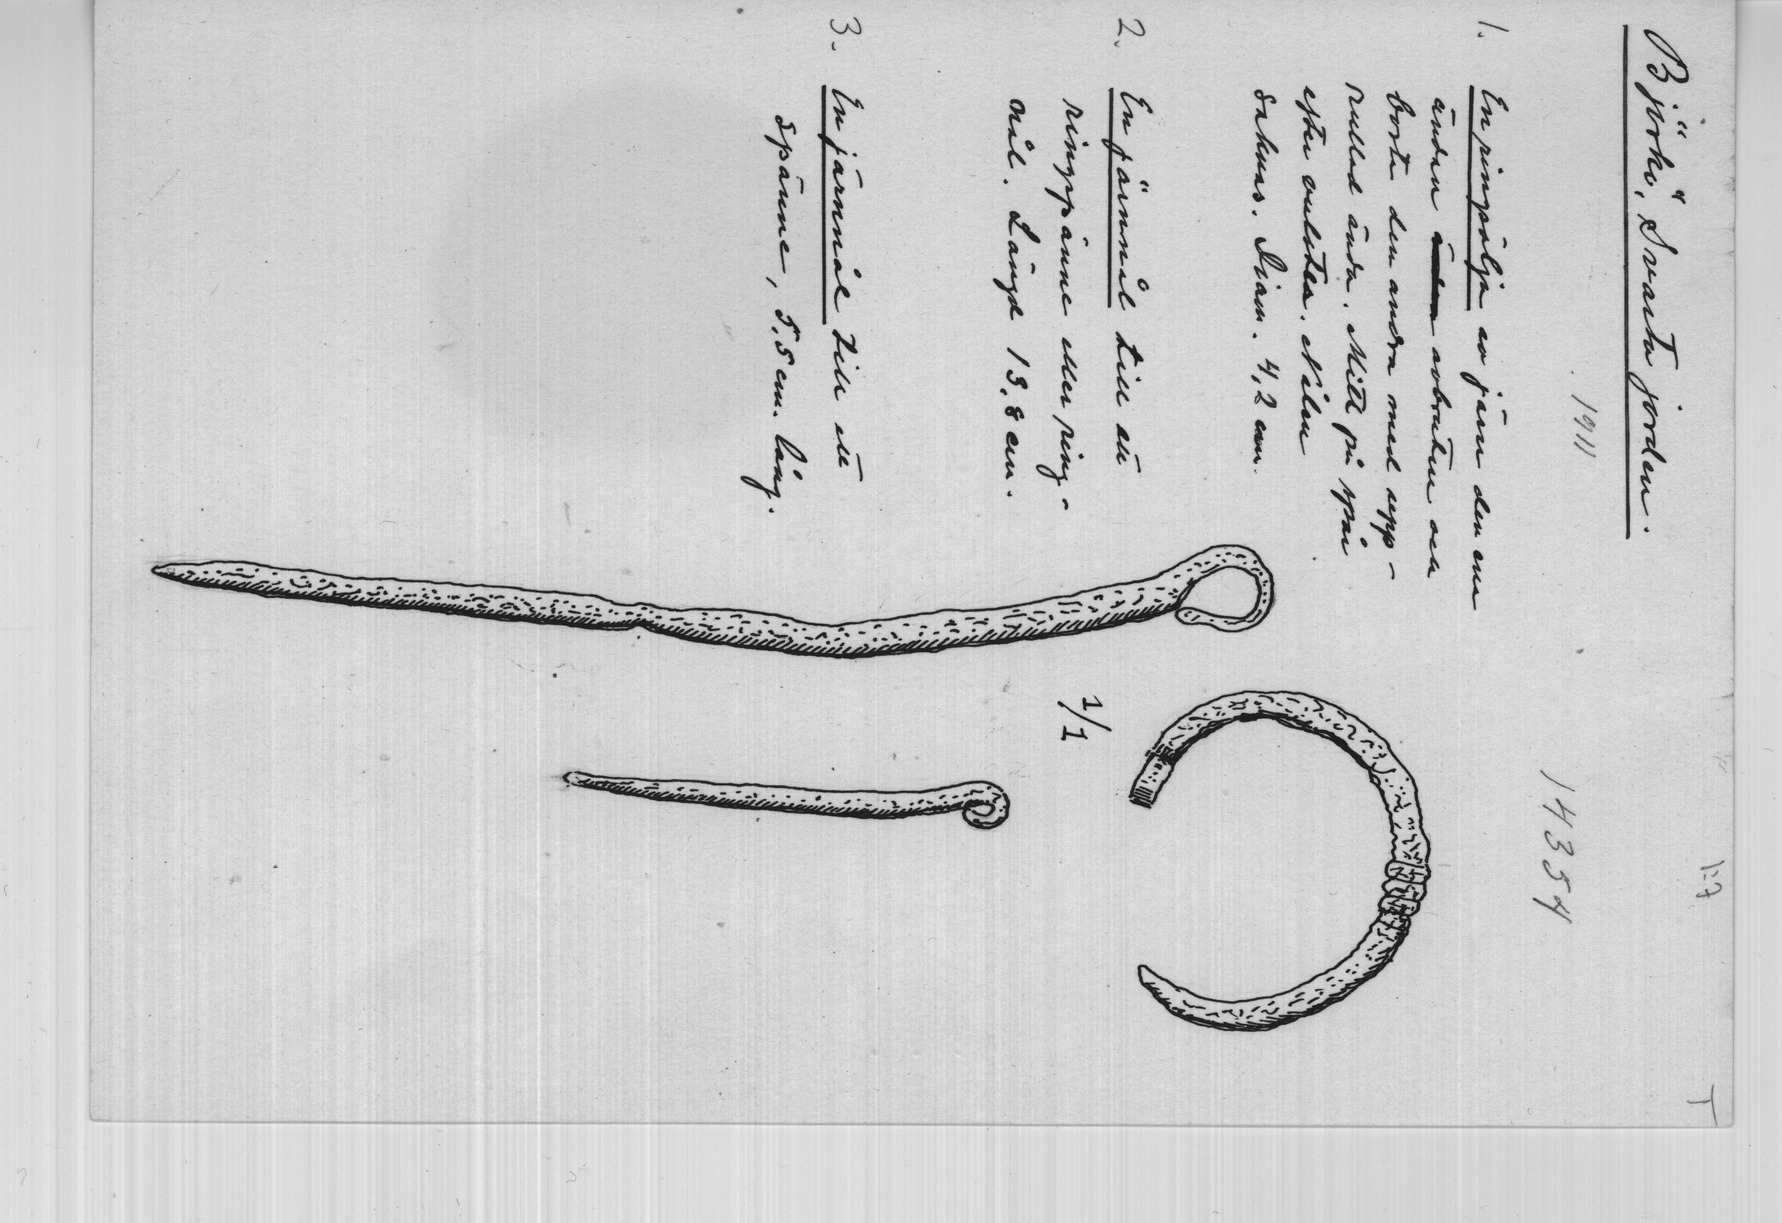 1:7
T
Björkö, Svarta jorden.
1911
14354
1. En ringsölja av järn den ena
änden avbruten och
borta den andra med upp-
rullad ända. Mitt på spår
efter omlottea. Nålen
saknas. Diam. 4,2 cm.
2. En järnnål till ett
ringspänne eller ring-
nål. Längd 13,8 cm.
1/1
3. En järnnål till ett
spänne, 5,5 cm. lång.